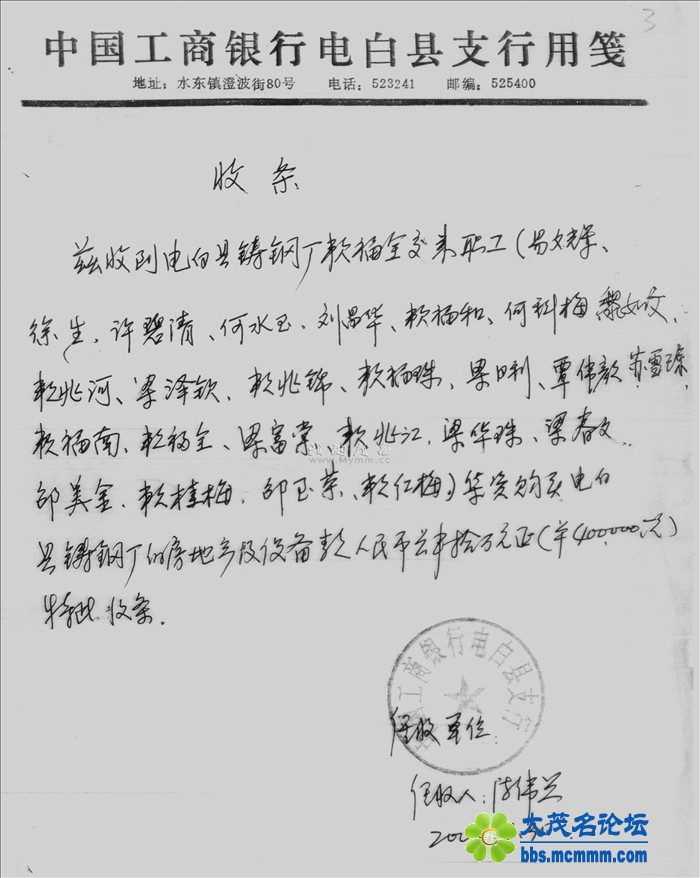 3
中国工商银行电白县支行用笺
地址：水东镇澄波街80号 电话：523241 邮编：525400
收条
兹收到电白县铸钢厂赖福全交来职工（易文荣、
徐生、许碧清、何水玉、刘昌华、赖福和、何科梅 黎如文、
赖兆河、梁泽钦、赖兆锦、赖福珠、梁日利、覃伟毅 苏雪琼、
赖福南、赖福全、梁富荣、赖兆江、梁华珠、梁春文、
www.Mymm.cc
邵美金、赖桂梅、邵玉荣、赖仁梅）集资购买电白
县铸钢厂的房地产及设备款人民币肆拾万元正（￥400,000元）
特此收条.
中国工商银行电白县支行
经收单位：
经收人：陈伟兰
大茂名论坛
bbs.mcmmm.com